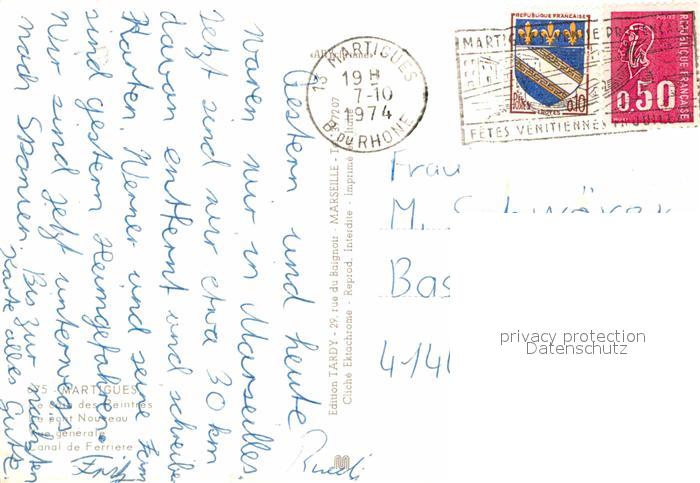 Gestern und heute
waren wir in Marseilles.
Jetzt sind wir etwa 30 km
davon entfernt und schreiben
Karten. Werner und seine Fam
sind gestern heimgefahren.
Wir sind jetzt unterwegs
nach Spanien. Bis zur nächsten
Karte alles Gute.
Ruedi
75 - MARTIGUES
des Peintres
pont Nouveau
générale
Canal de Ferriere
Edition TARDY - 29, rue du Baignoir - MARSEILLE -
Cliché Ektachrome - Reprod. Interdite - Imprimé
13 MARTIGUES
19 H
7-10
1974
B. DU RHONE
MARTIG
FÊTES VENITIENNES JUILLET
REPUBLIQUE FRANÇAISE
0,10
TROYES
POSTES
REPUBLIQUE FRANÇAISE
0,50
Frau
M.
Bas
414
privacy protection
Datenschutz